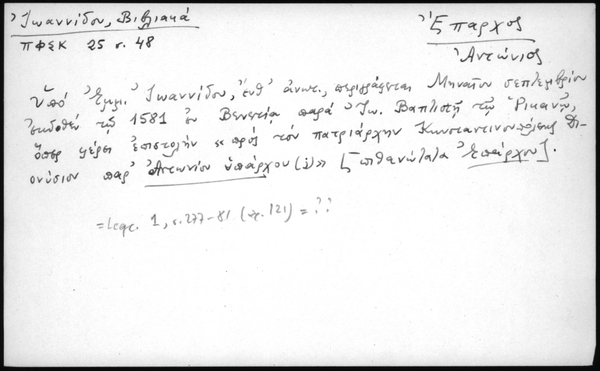 Ἰωαννίδου, Βιβλιακά
ΠΦΣΚ 25 σ. 48
Ἔπαρχος
Ἀντώνιος
Ὑπό Ἐμμ. Ἰωαννίδου, ἔνθ' ἀνωτ., περιγράφεται Μηναῖον σεπτεμβρίου
ἐκδοθέν τῷ 1581 ἐν Βενετίᾳ παρά Ἰω. Βαπτιστῇ τῷ
ὅπερ φέρει ἐπιστολήν «πρός τόν πατριάρχην Κωνσταντινουπόλεως Δι-
ονύσιον παρ' Ἀντωνίου ὑπάρχου (i)» [πιθανώτατα Ἐπάρχου].
= Legr. 1, σ. 277-81 (ἀρ. 121) = ??